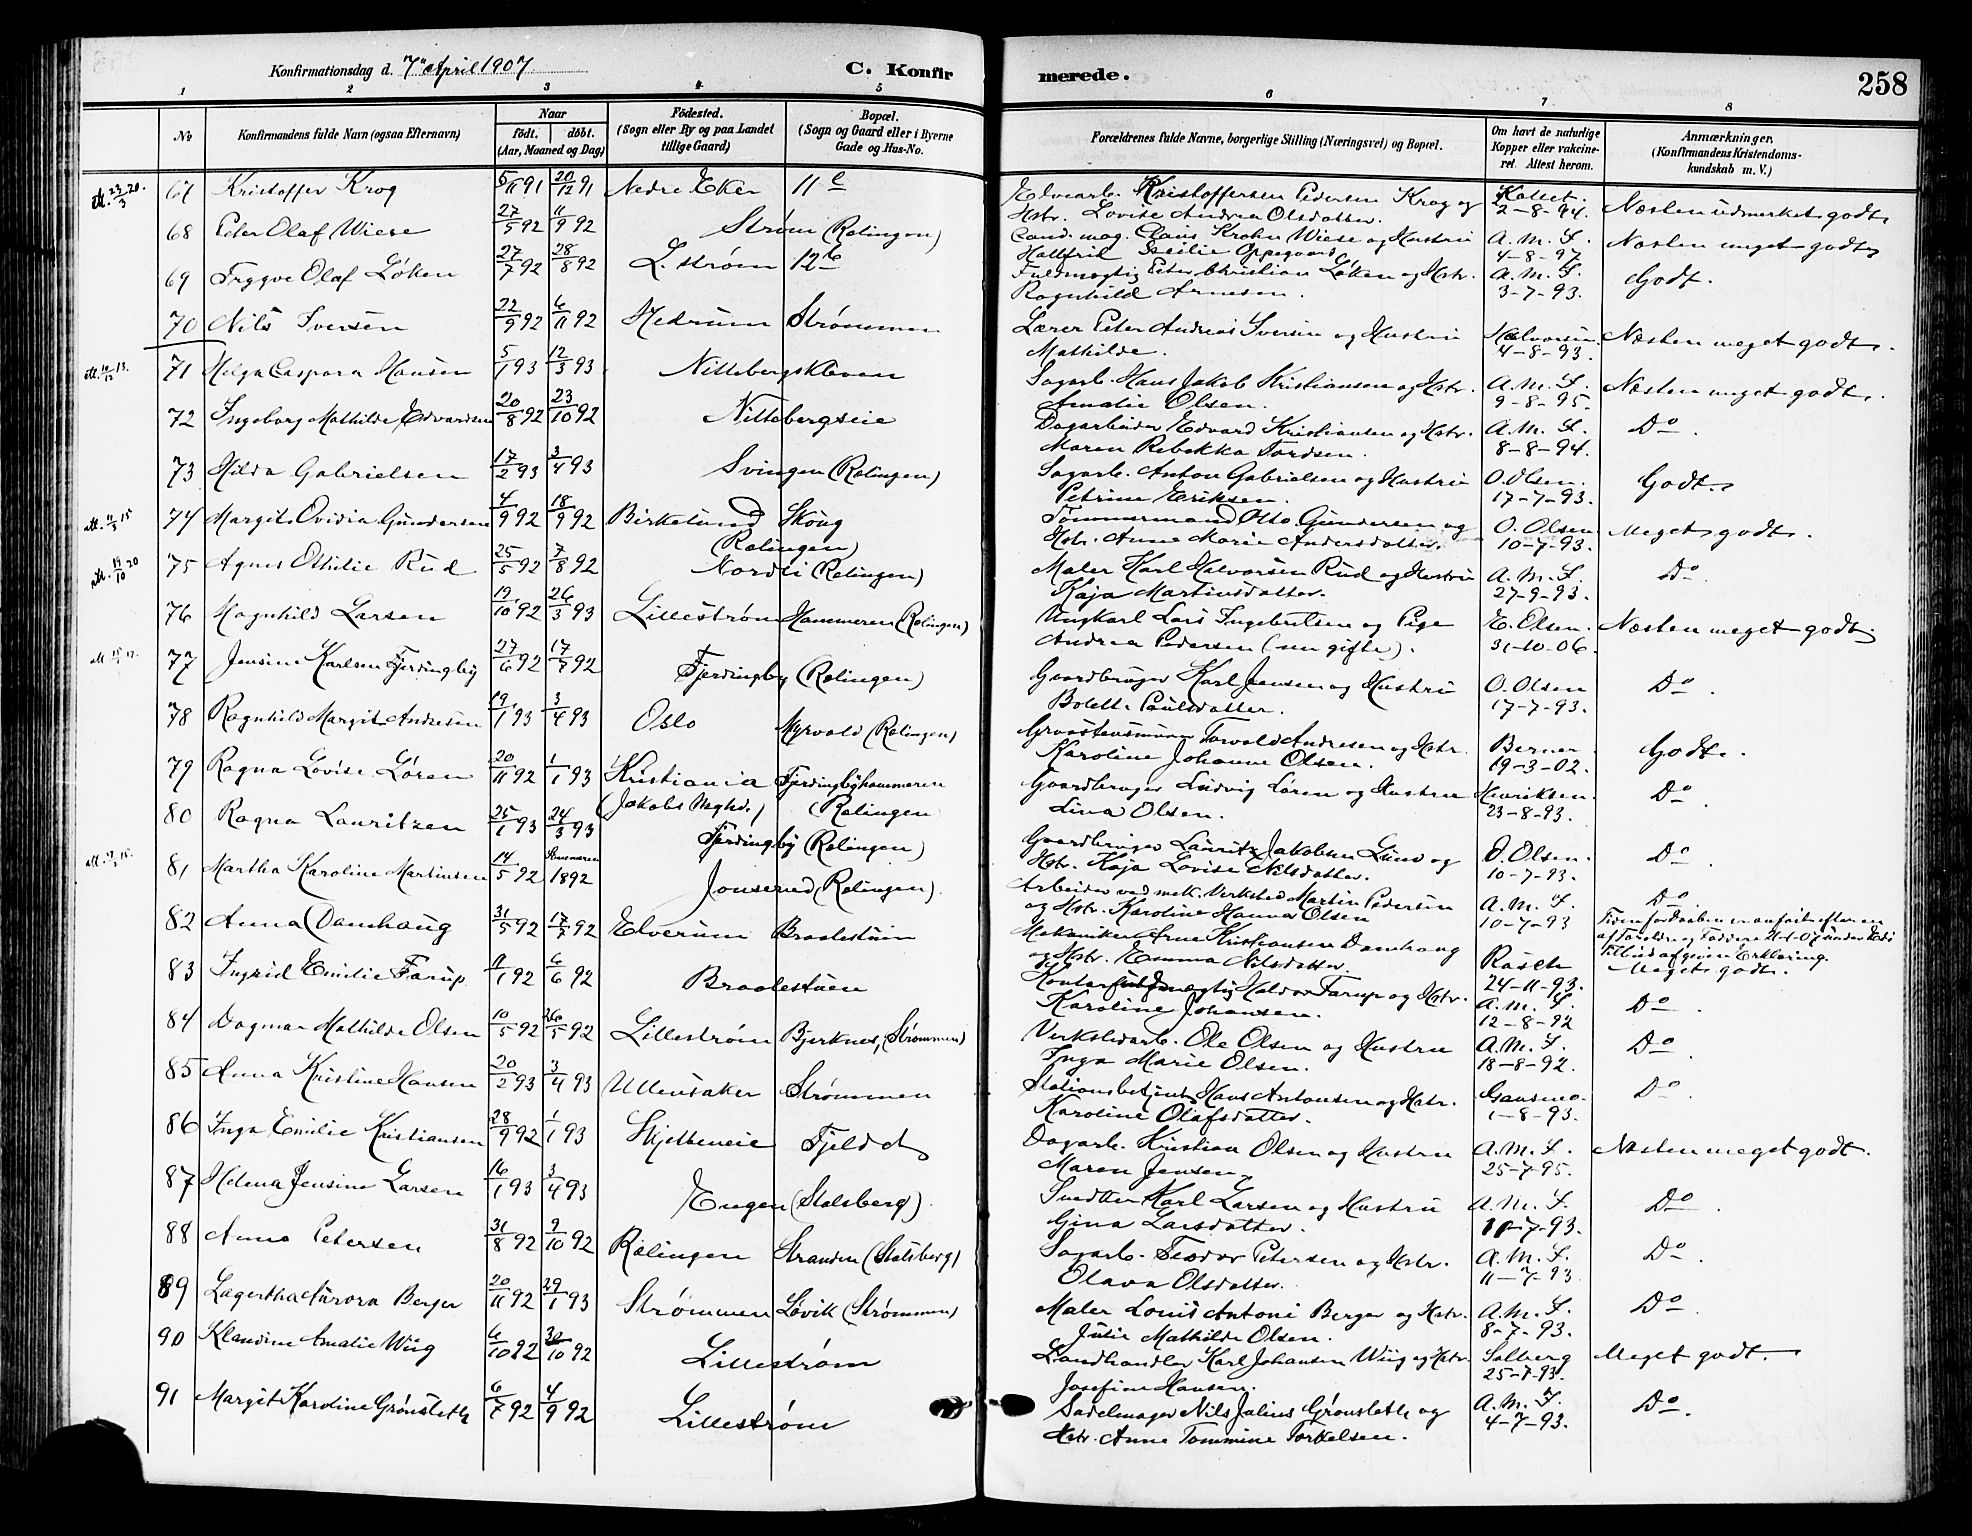 Konfirmationsdag d. 7de April 1907
C. Konfirmerede.
258
1 2 3 4 5 6 7 8
No
Konfirmandens fulde Navn (ogsaa Efternavn)
Naar
födt. döbt.
(Aar, Maaned og Dag)
Födested.
(Sogn eller By og paa Landet
tillige Gaard)
Bopæl.
(Sogn og Gaard eller i Byerne
Gade og Hus-No.
Forældrenes fulde Navne, borgerlige Stilling (Næringsvei) og Bopæl.
Om havt de naturlige
Kopper eller vakcine-
ret. Attest herom.
Anmærkninger.
(Konfirmandens Kristendoms-
kundskab m. V.)
67 Kristoffer Krog 5/11 91 20/12 91 Nedre Eker 11 c Elvearb. Kristoffersen Pedersen Krog og 2-8-94. Næsten udmerket godt.
Hstr. Lovise Andrea Olsdatter.
68 Peter Olaf Wiese 27/5 92 11/9 92 Strøm (Rælingen) Cand. mag. Claus Krohn Wiese og Hustru A. M. F. Næsten meget godt
Hallfrid Cecilie Oppegaard 4-8-97
69 Trygve Olaf Løken 27/7 92 28/8 92 L.strøm 12 b Fuldmægtig Peter Christian Løken og Hstr. A. M. F. Godt.
Ragnhild Arnesen. 3-7-93.
70 Nils Iversen 22/9 92 6/11 92 Hedrum Strømmen Lærer Peter Andreas Iversen og Hustru Halvorsen. Næsten meget godt.
Mathilde. 4-8-93.
71 Helga Caspara Hansen 5/1 93 12/3 93 Nittebergskleven Sagarb. Hans Jakob Kristiansen og Hstr. A. M. F. Næsten meget godt.
Amalie Olsen. 9-8-95.
72 Ingeborg Mathilde Edvardsen 20/8 92 23/10 92 Nittebergseie Dagarbeider Edvard Kristiansen og Hstr. A. M. F. Do.
Maren Rebekka Tordsen. 8-8-94.
73 Hilda Gabrielsen 17/2 93 3/4 93 Svingen (Rælingen) Sagarb. Anton Gabrielsen og Hustru O. Olsen. Godt.
Petrine Eriksen. 17-7-93.
74 Margit Ovidia Gundersen 4/9 92 18/9 92 Birkelund Skoug (Rælingen) Tømmermand Otto Gundersen og O. Olsen Meget godt.
Hstr. Anne Marie Andersdatter. 10-7-93.
75 Agnes Othilie Rud 25/5 92 7/8 92 Nordli (Rælingen) Maler Karl Halvorsen Rud og Hustru A. M. F. Do.
Kaja Martinsdatter. 27-9-93.
76 Magnhild Larsen 19/10 92 26/3 93 Lillestrøm Hammeren (Rælingen) Ungkarl Lars Ingebretsen og Pige E. Olsen. Næsten meget godt.
Andrea Pedersen (nu gifte). 31-10-06.
77 Jensine Karlsen Fjerdingby 27/6 92 17/7 92 Fjerdingby (Rælingen) Gaardbruger Karl Jensen og Hustru O. Olsen Do.
Bolette Paulsdatter. 17-7-93.
78 Ragnhild Margit Andresen 19/1 93 3/4 93 Oslo Myrvold (Rælingen) Torvald Andresen og Hstr. Berner Godt.
Karoline Johanne Olsen. 19-3-02.
79 Ragna Lovise Løren 20/11 92 1/1 93 Kristiania Fjerdingbyhammeren Gaardbruger Ludvig Løren og Hustru Henriksen. Do.
(Jakobs Meghd.) (Rælingen) Lina Olsen. 23-8-93.
80 Ragna Lauritzen 25/1 93 24/3 93 Fjerdingby (Rælingen) Gaardbruger Lauritz Jakobsen Lund og O. Olsen. Do.
Hstr. Kaja Lovise Nilsdatter. 10-7-93.
81 Martha Karoline Martinsen 14/5 92 Sommeren 1892 Jonserud (Rælingen). Arbeider ved mek. Verksted Martin Pedersen A. M. F. Do.
og Hstr. Karoline Hanna Olsen 10-7-93 Tiden for Daaben er anført efter en
af Forældre og Faddere 21-1-07 under Eds
Tilbud afgiven Erklæring.
82 Anna Damhaug 31/5 92 17/7 92 Elverum Braatestuen Mekaniker Arne Kristiansen Damhaug Rasch Meget godt.
og Hstr. Emma Nilsdatter. 24-11-93.
83 Ingrid Emilie Farup 11/1 92 6/6 92 Braatestuen Kontorfuldmægtig Haldor Farup og Hstr. A. M. F. Do.
Karoline Johansen. 12-8-92
84 Dagmar Mathilde Olsen 10/5 92 26/5 92 Lillestrøm Bjerknes, (Strømmen) Verkstedarb. Ole Olsen og Hustru A. M. F. Do.
Inga Marie Olsen. 18-8-92.
85 Anna Kristine Hansen 20/2 93 3/4 93 Ullensaker Strømmen Stationsbetjent Hans Antonsen og Hstr. Gausmo. Do.
Karoline Olafsdatter. 1-8-93.
86 Inga Emilie Kristiansen 28/9 92 1/1 93 Skjetteneie Fjeldet Dagarb. Kristian Olsen og Hustru A. M. F. Næsten meget godt.
Maren Jensen. 25-7-95.
87 Helena Jensine Larsen 16/1 93 3/4 93 Engen (Stalsberg). Karl Larsen og Hustru A. M. F. Do.
Gina Larsdatter. 11-7-93.
88 Anna Petersen 31/8 92 9/10 92 Rælingen Stranden (Stalsberg) Sagarb. Teodor Petersen og Hstr. A. M. F. Do.
Olava Olsdatter. 11-7-93
89 Lagertha Aurora Berger 20/11 92 29/1 93 Strømmen Løvik (Strømmen) Maler Louis Antoni Berger og Hstr. A. M. F. Do.
Julie Mathilde Olsen. 8-7-93.
90 Klaudine Amalie Wiig 6/10 92 30/10 92 Lillestrøm Landhandler Karl Johansen Wiig og Hstr. Solberg Meget godt.
Josefine Hansen. 25-7-93.
91 Margit Karoline Grønsleth 6/7 92 4/9 92 Lillestrøm Sadelmager Nils Julius Grønsleth og A. M. F. Do.
Hstr. Anne Tommine Torkelsen. 4-7-93.